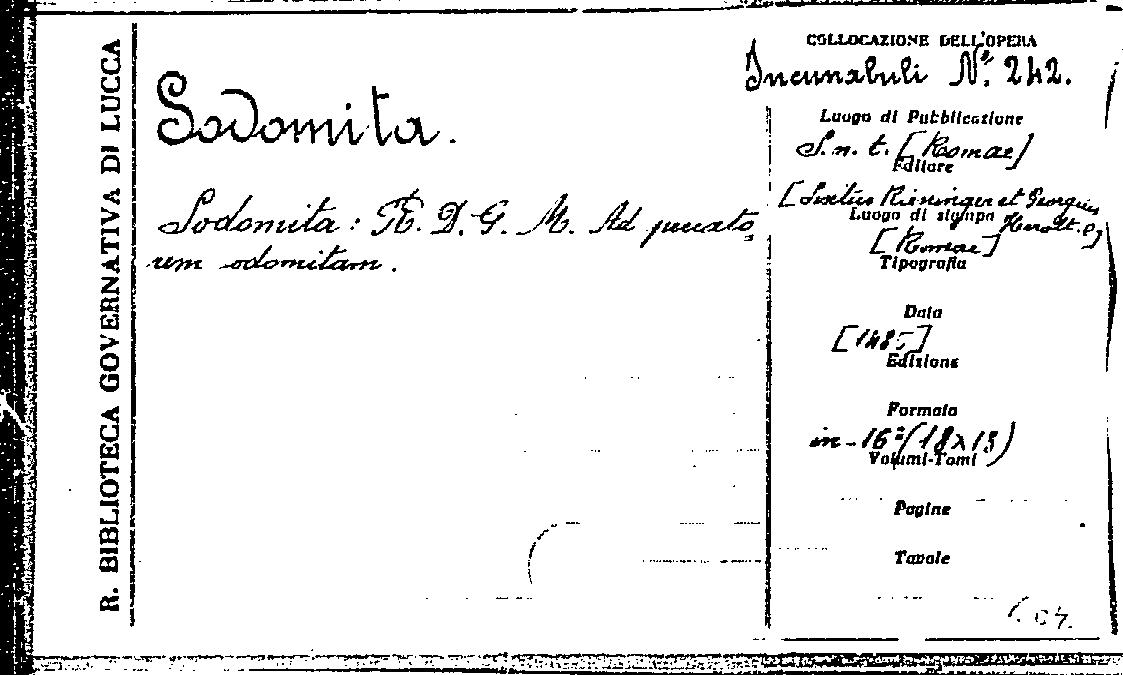 R. BIBLIOTECA GOVERNATIVA DI LUCCA
Sodomita.
Sodomita: R. D. G. M. Ad peccato=
rem odomitam.
COLLOCAZIONE DELL'OPERA
Incunabuli Nº. 242.
Luogo di Pubblicazione
S. n. t. [Romae]
Editore
[Sixtus Riesinger et Georgius
Herolt.]
Luogo di stampa
[Romae]
Tipografia
Data
[1485]
Edizione
Formato
in-16º (18x13)
Volumi-Tomi
Pagine
Tavole